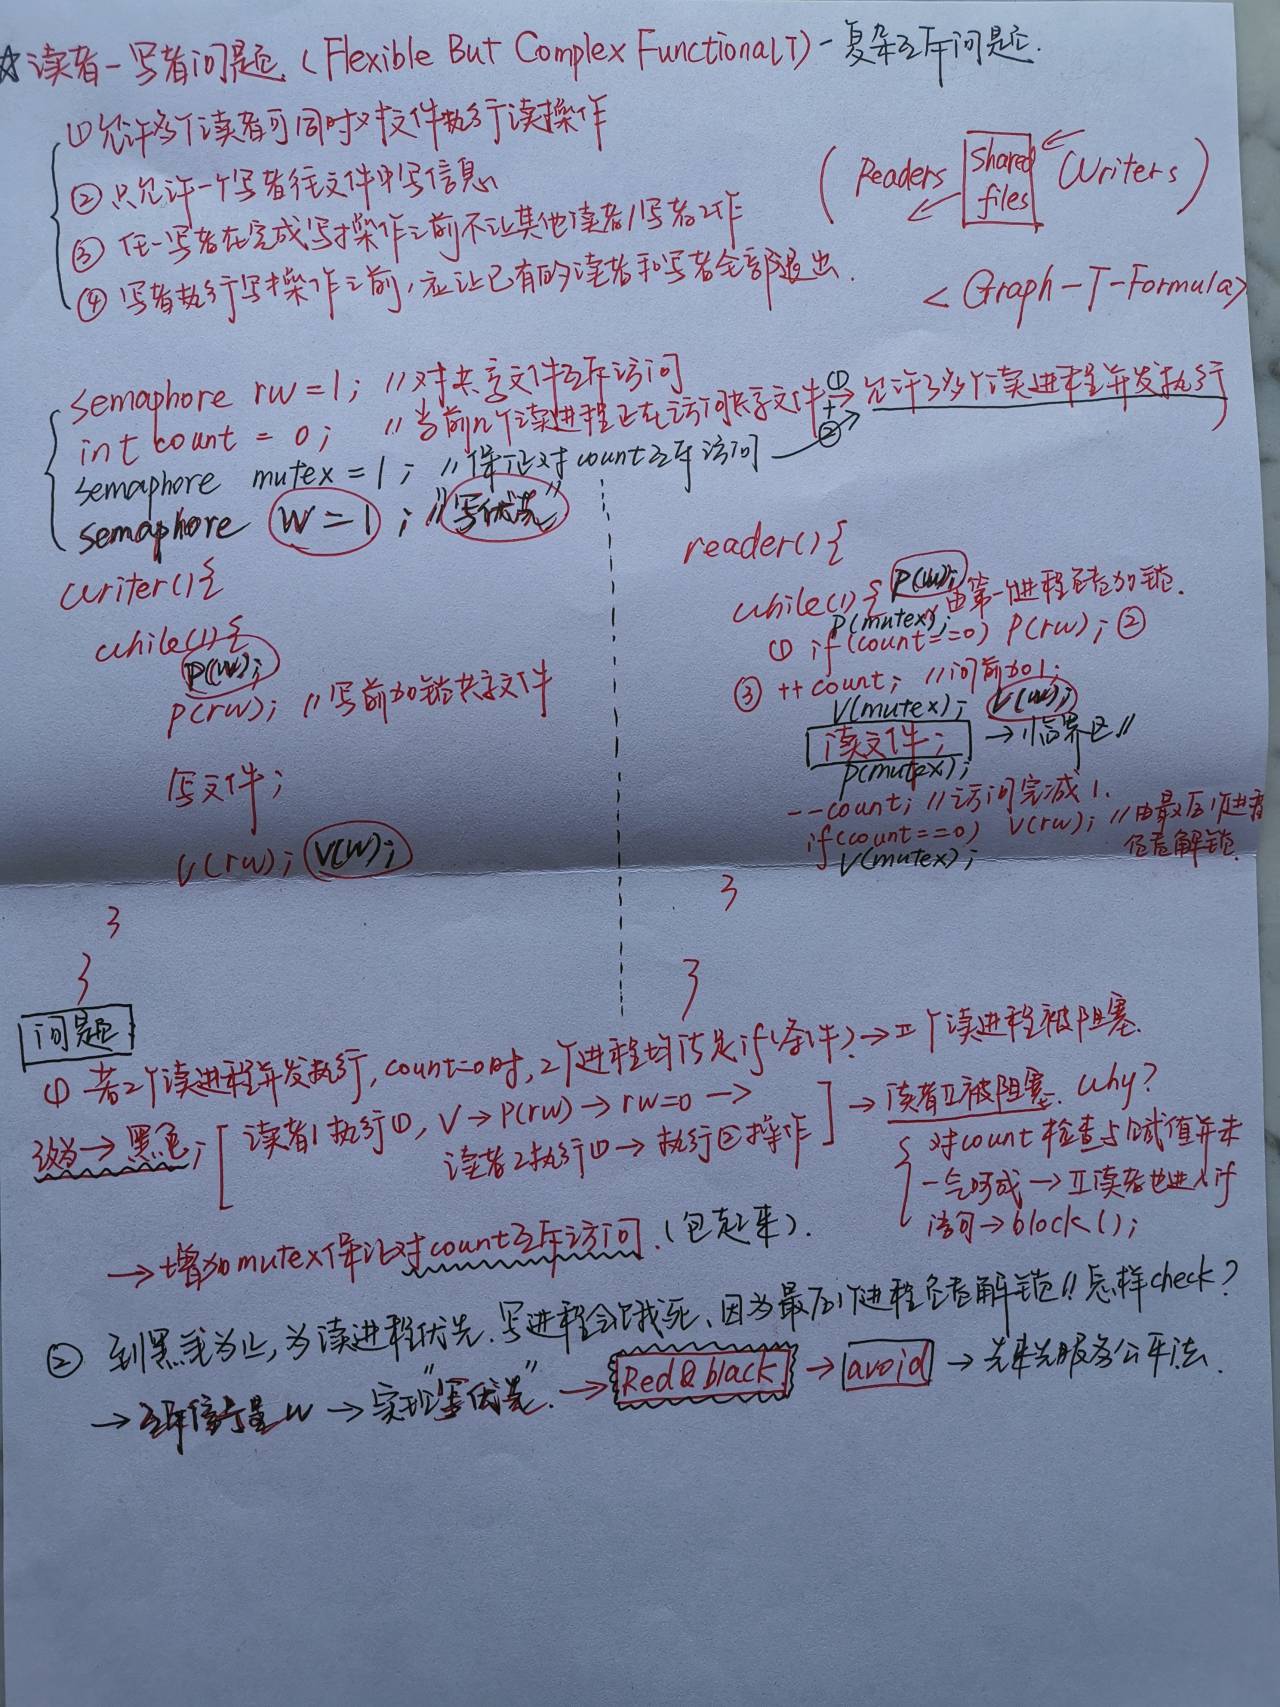 ☆读者-写者问题 (Flexible But Complex Functional T) - 复杂互斥问题.
① 允许多个读者可同时对文件执行读操作
② 只允许一个写者往文件中写信息
③ 任一写者在完成写操作之前不让其他读者/写者工作
④ 写者执行写操作之前, 应让已有的读者和写者全部退出.
(Readers Shared files Writers)
<Graph-T-Formula>
semaphore rw=1; //对共享文件互斥访问
int count = 0; //当前几个读进程正在访问共享文件 ①+② 允许多个读进程并发执行
semaphore mutex=1; //保证对count互斥访问
semaphore W=1; //"写优先"
writer(){
while(1){
P(w);
P(rw); //写前加锁共享文件
写文件;
V(rw); V(W);
}
}
reader(){
while(1){ P(w);
P(mutex); 由第一个进程负责加锁.
① if(count==0) P(rw); ②
③ ++count; //访问前加1;
V(mutex); V(w);
读文件; → 临界区//
P(mutex);
--count; //访问完减1.
if(count==0) V(rw); //由最后1个进程
V(mutex); 负责解锁.
}
}
问题
① 若2个读进程并发执行, count=0时, 2个进程均满足if(条件) → II个读进程被阻塞.
改为→黑色; [ 读者1执行①, V → P(rw) → rw=0 →
读者2执行① → 执行②操作 ] → 读者II被阻塞. Why?
{ 对count检查与赋值并未
一气呵成 → II读者也进入if
语句 → block();
→ 增加mutex保证对count互斥访问. (包起来).
② 到黑笔为止, 为读进程优先. 写进程会饿死, 因为最后1个进程负责解锁!! 怎样check?
→ 互斥信号量W → 实现"写优先". → Red&black → avoid → 先来先服务公平法.